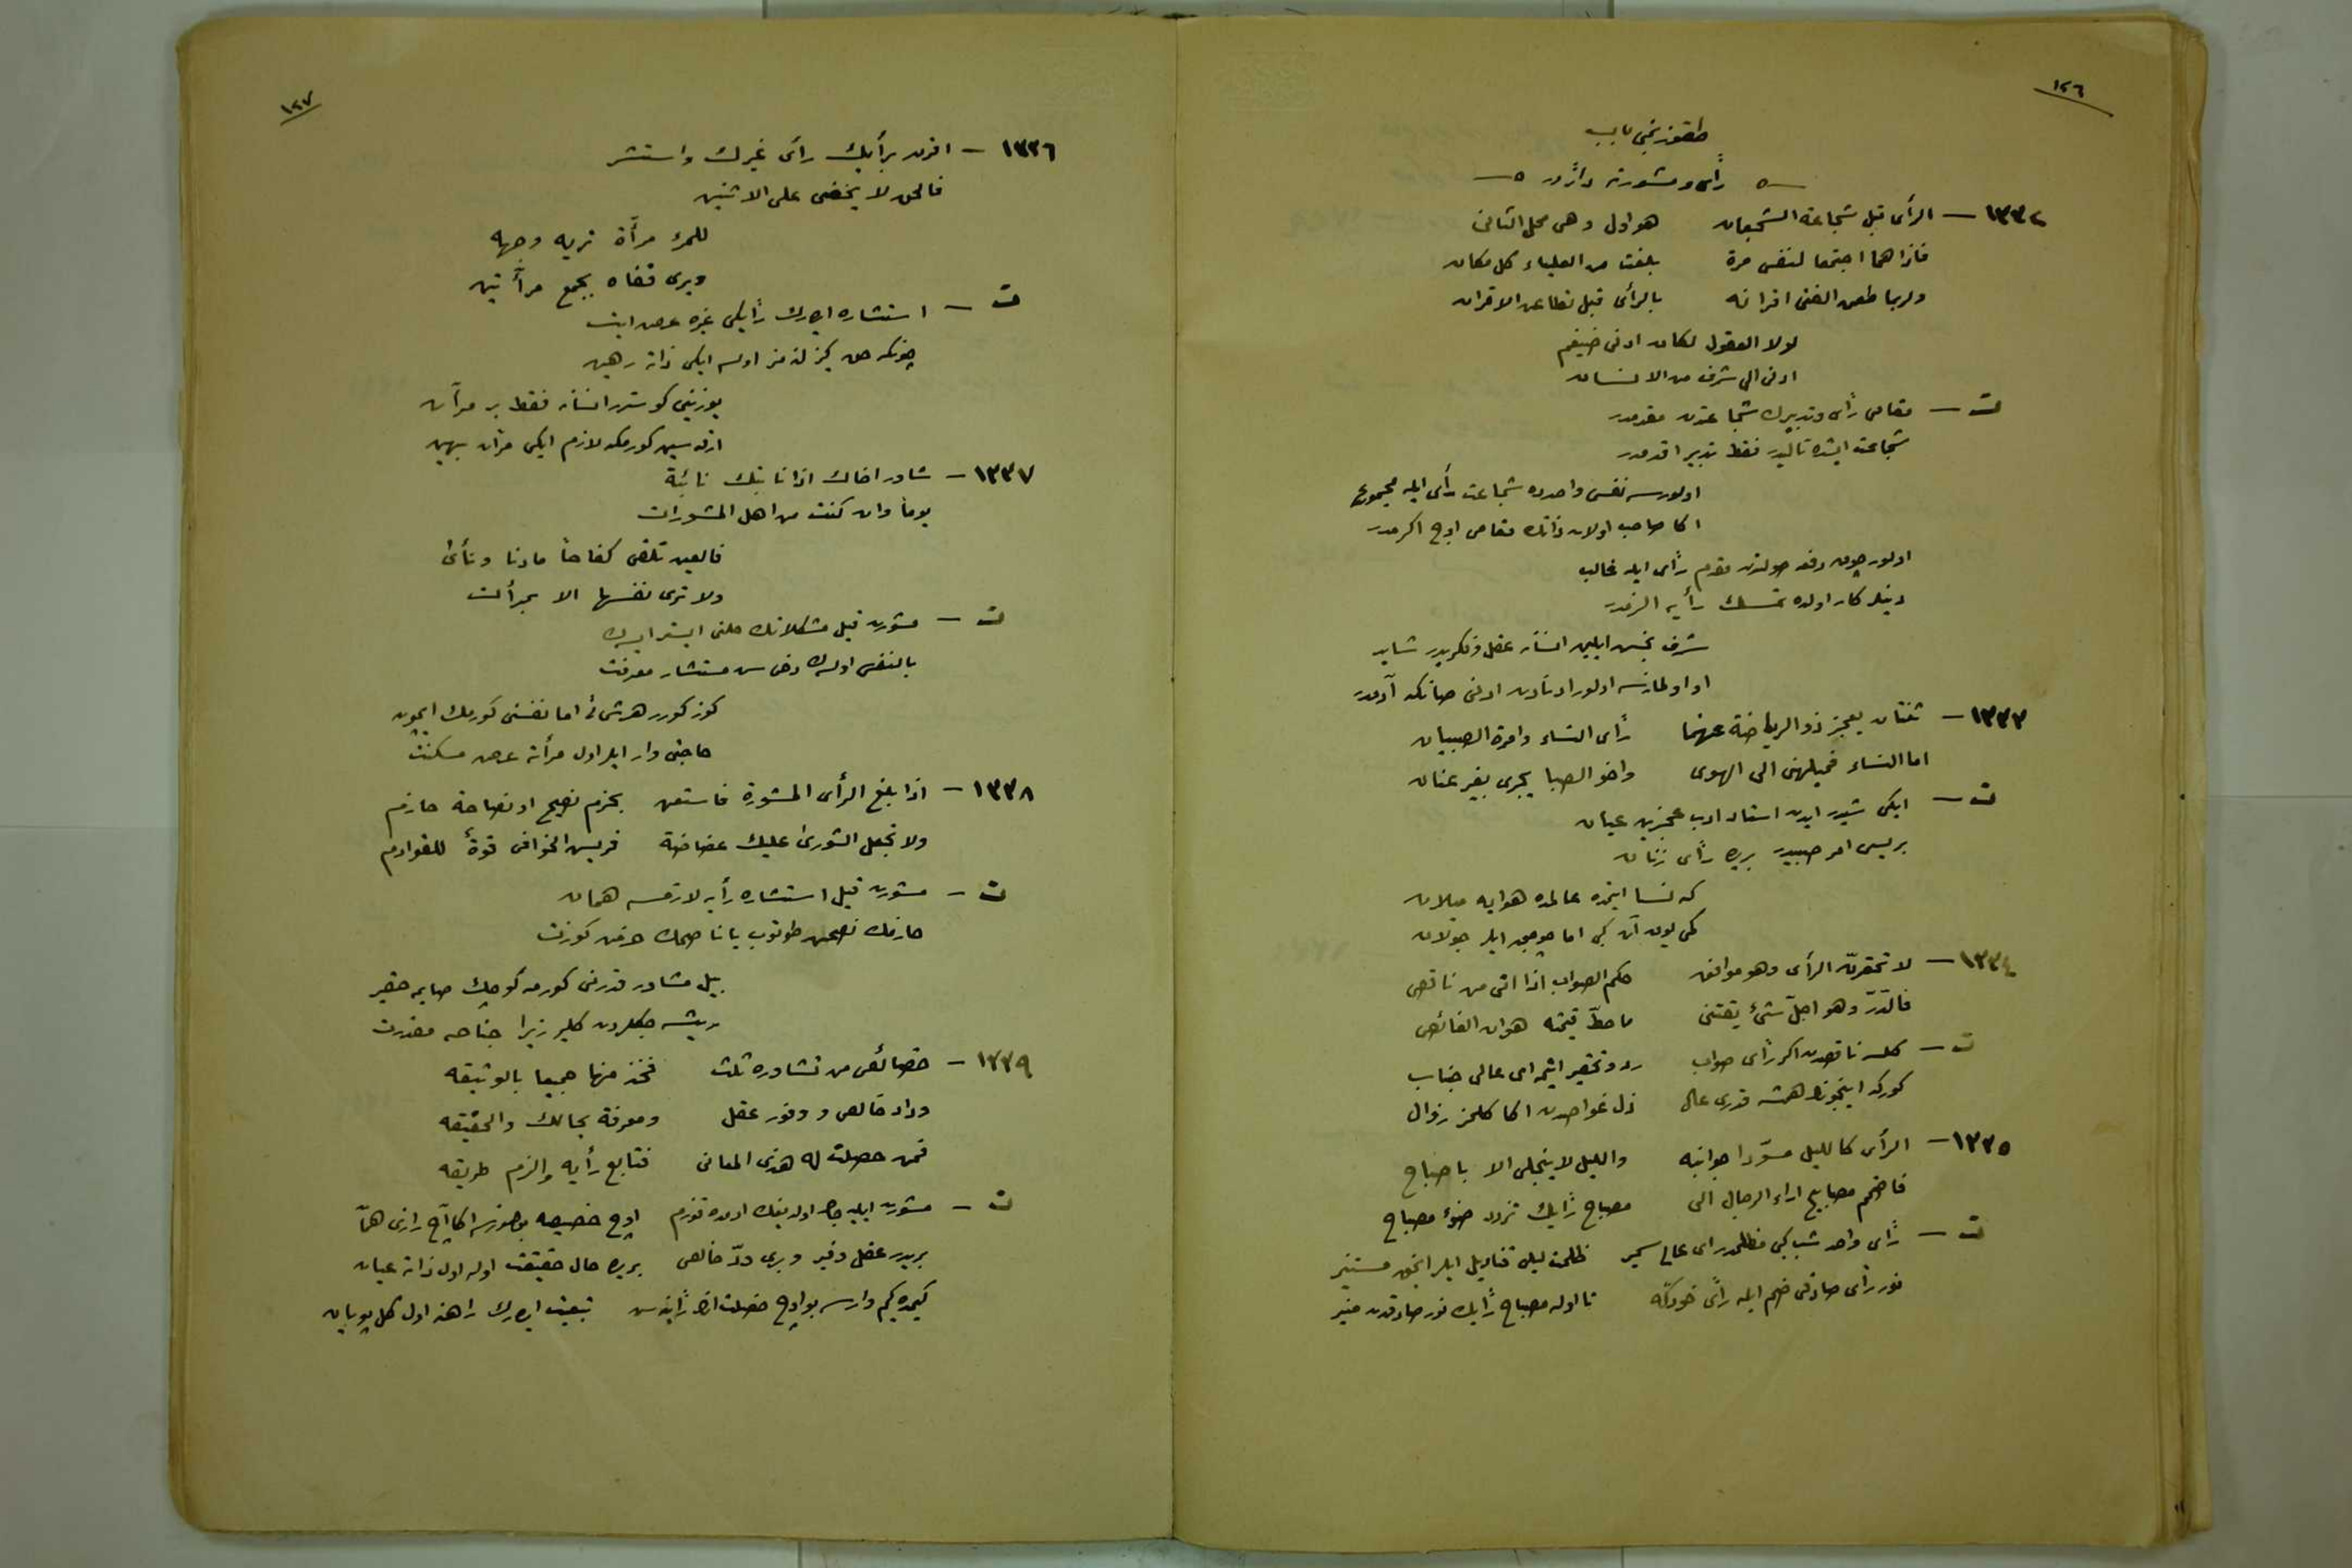 ١٢٦
طقوزنجی باب
— ٥ رأی و مشورته دائر در ٥ —
١٣٣٢ — الرأی قبل شجاعة الشجعان هو اول و هی محل الثانی
فاذا هما اجتمعا لنفس مرة بلغت من العلیاء کل مکان
ولربما طعن الفتی اقرانه بالرأی قبل تطاعن الاقران
لولا العقول لکان ادنی ضیغم
ادنی الی شرف من الانسان
ت — مقامی رأی و تدبیرك شجاعتدن مقدمدر
شجاعت ایشده تالیدر فقط تدبیر اقدمدر
اولورسه نفس واحدده شجاعت رأی ایله مجموع
اکا صاحب اولان ذاتك مقامی اوج اکرمدر
اولور چوق دفعه صولتدن مقدم رأی ایله غالب
دینلر کار اولده تمسك رأیه الزمدر
شرف بخش ایلین انسانه عقل و فکریدر شاید
او اولمازسه اولور ادنادن ادنی صانکه آدمدر
١٣٣٣ — ثنتان یعجز ذو الریاضة عنهما رأی النساء وامرة الصبیان
اما النساء فمیلهن الی الهوی واخو الصبا یجری بغیر عنان
ت — ایکی شیدر ایدن استاد ادب عجزین عیان
بریسی امر صبیدر بری رأی زنان
که نسا ایتمده عالمده هوایه میلان
کمی یوق آت کبی اما چوجق ایلر جولان
١٣٣٤ — لا تحقرنّ الرأی وهو موافق حکم الصواب اذا اتی من ناقص
فالدّرّ وهو اجلّ شیٔ یقتنی ما حطّ قیمته هوان الغائص
ت — کلسه ناقصدن اکر رأی صواب رد و تحقیر ایتمه ای عالی جناب
کورکه اینجونك همیشه قدری عال ذل غواصدن اکا کلمز زوال
١٣٣٥ — الرأی کاللیل مسودّا جوانبه واللیل لا ینجلی الا باصباح
فاضمم مصابیح اراء الرجال الی مصباح رأیك تزدد ضوء مصباح
ت — رأی واحد شب کبی مظلمدر ای عالی سمیر ظلمت لیلی قنادیل ایلر انجق مستنیر
نور رأی صادقی ضم ایله رأی خودکه تا اوله مصباح رأیك نور صادقدن منیر
١٢٧
١٣٣٦ — اقرن برأیك رأی غیرك واستشر
فالحق لا یخفی علی الاثنین
للمرء مرآة تریه وجهه
ویری قفاه بجمع مرآتین
ت — استشاره ایدرك رأیکی غیره عرض ایت
چونکه حق کیزلنمز اولسه ایکی ذاته رهین
یوزینی کوسترر انسانه فقط بر مرآت
ارقه سین کورمکه لازم ایکی مرآت بهین
١٣٣٧ — شاور اخاك اذا نابتك نائبة
یوماً وان کنت من اهل المشورات
فالعین تلقی کفاحاً ما دنا ونأی
ولا تری نفسها الا بمرآت
ت — مشورت قیل مشکلاتك حلنی ایستر ایسه ك
بالنفس اولسه ك دخی سن مستشار معرفت
کوز کورر هر شیٔ اما نفسنی کورمك ایچون
حاجتی وار ایلر اول مرآته عرض مسکنت
١٣٣٨ — اذا بلغ الرأی المشورة فاستعن بحزم نصیح او نصاحة حازم
ولا تجعل الشوری علیك غضاضة فریش الخوافی قوةٌ للقوادم
ت — مشورت قیل استشاره رأیه لازمسه همان
حازمك نصحین طوتوب یا ناصحك حزمن کوزت
بیل مشاور قدرینی کورمه کوچك صایمه حقیر
ریشه جکلردن کلیر زیرا جناحه مقدرت
١٣٣٩ — خصائص من تشاوره ثلث فخذ منها جمیعا بالوثیقه
وداد خالص و وفور عقل ومعرفة بحالك والحقیقه
فمن حصلت له هذی المعانی فتابع رأیه والزم طریقه
ت — مشورت ایلیه جك اولدیغك آدمده توزم اوچ خصیصه بولنورسه اکا آچ رازی همّا
بریدر عقل وفیر و بری ودّ خالص بریده حال حقیقت اوله اول ذاته عیان
کیمده کیم وارسه بو اوچ خصلت انك رأینه سن تبعیت ایدرك راهنه اول کل پویان